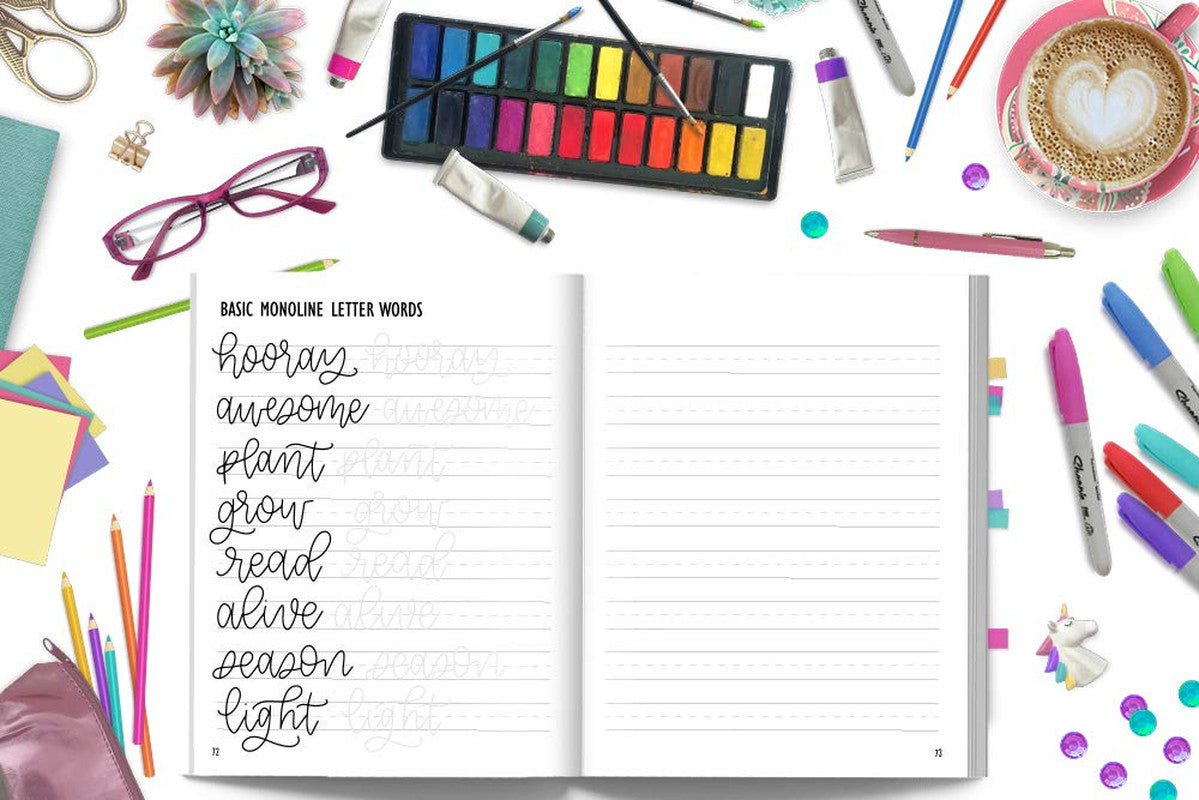 BASIC MONOLINE LETTER WORDS
hooray hooray
awesome awesome
plant plant
grow grow
read read
alive alive
season season
light light
72
73